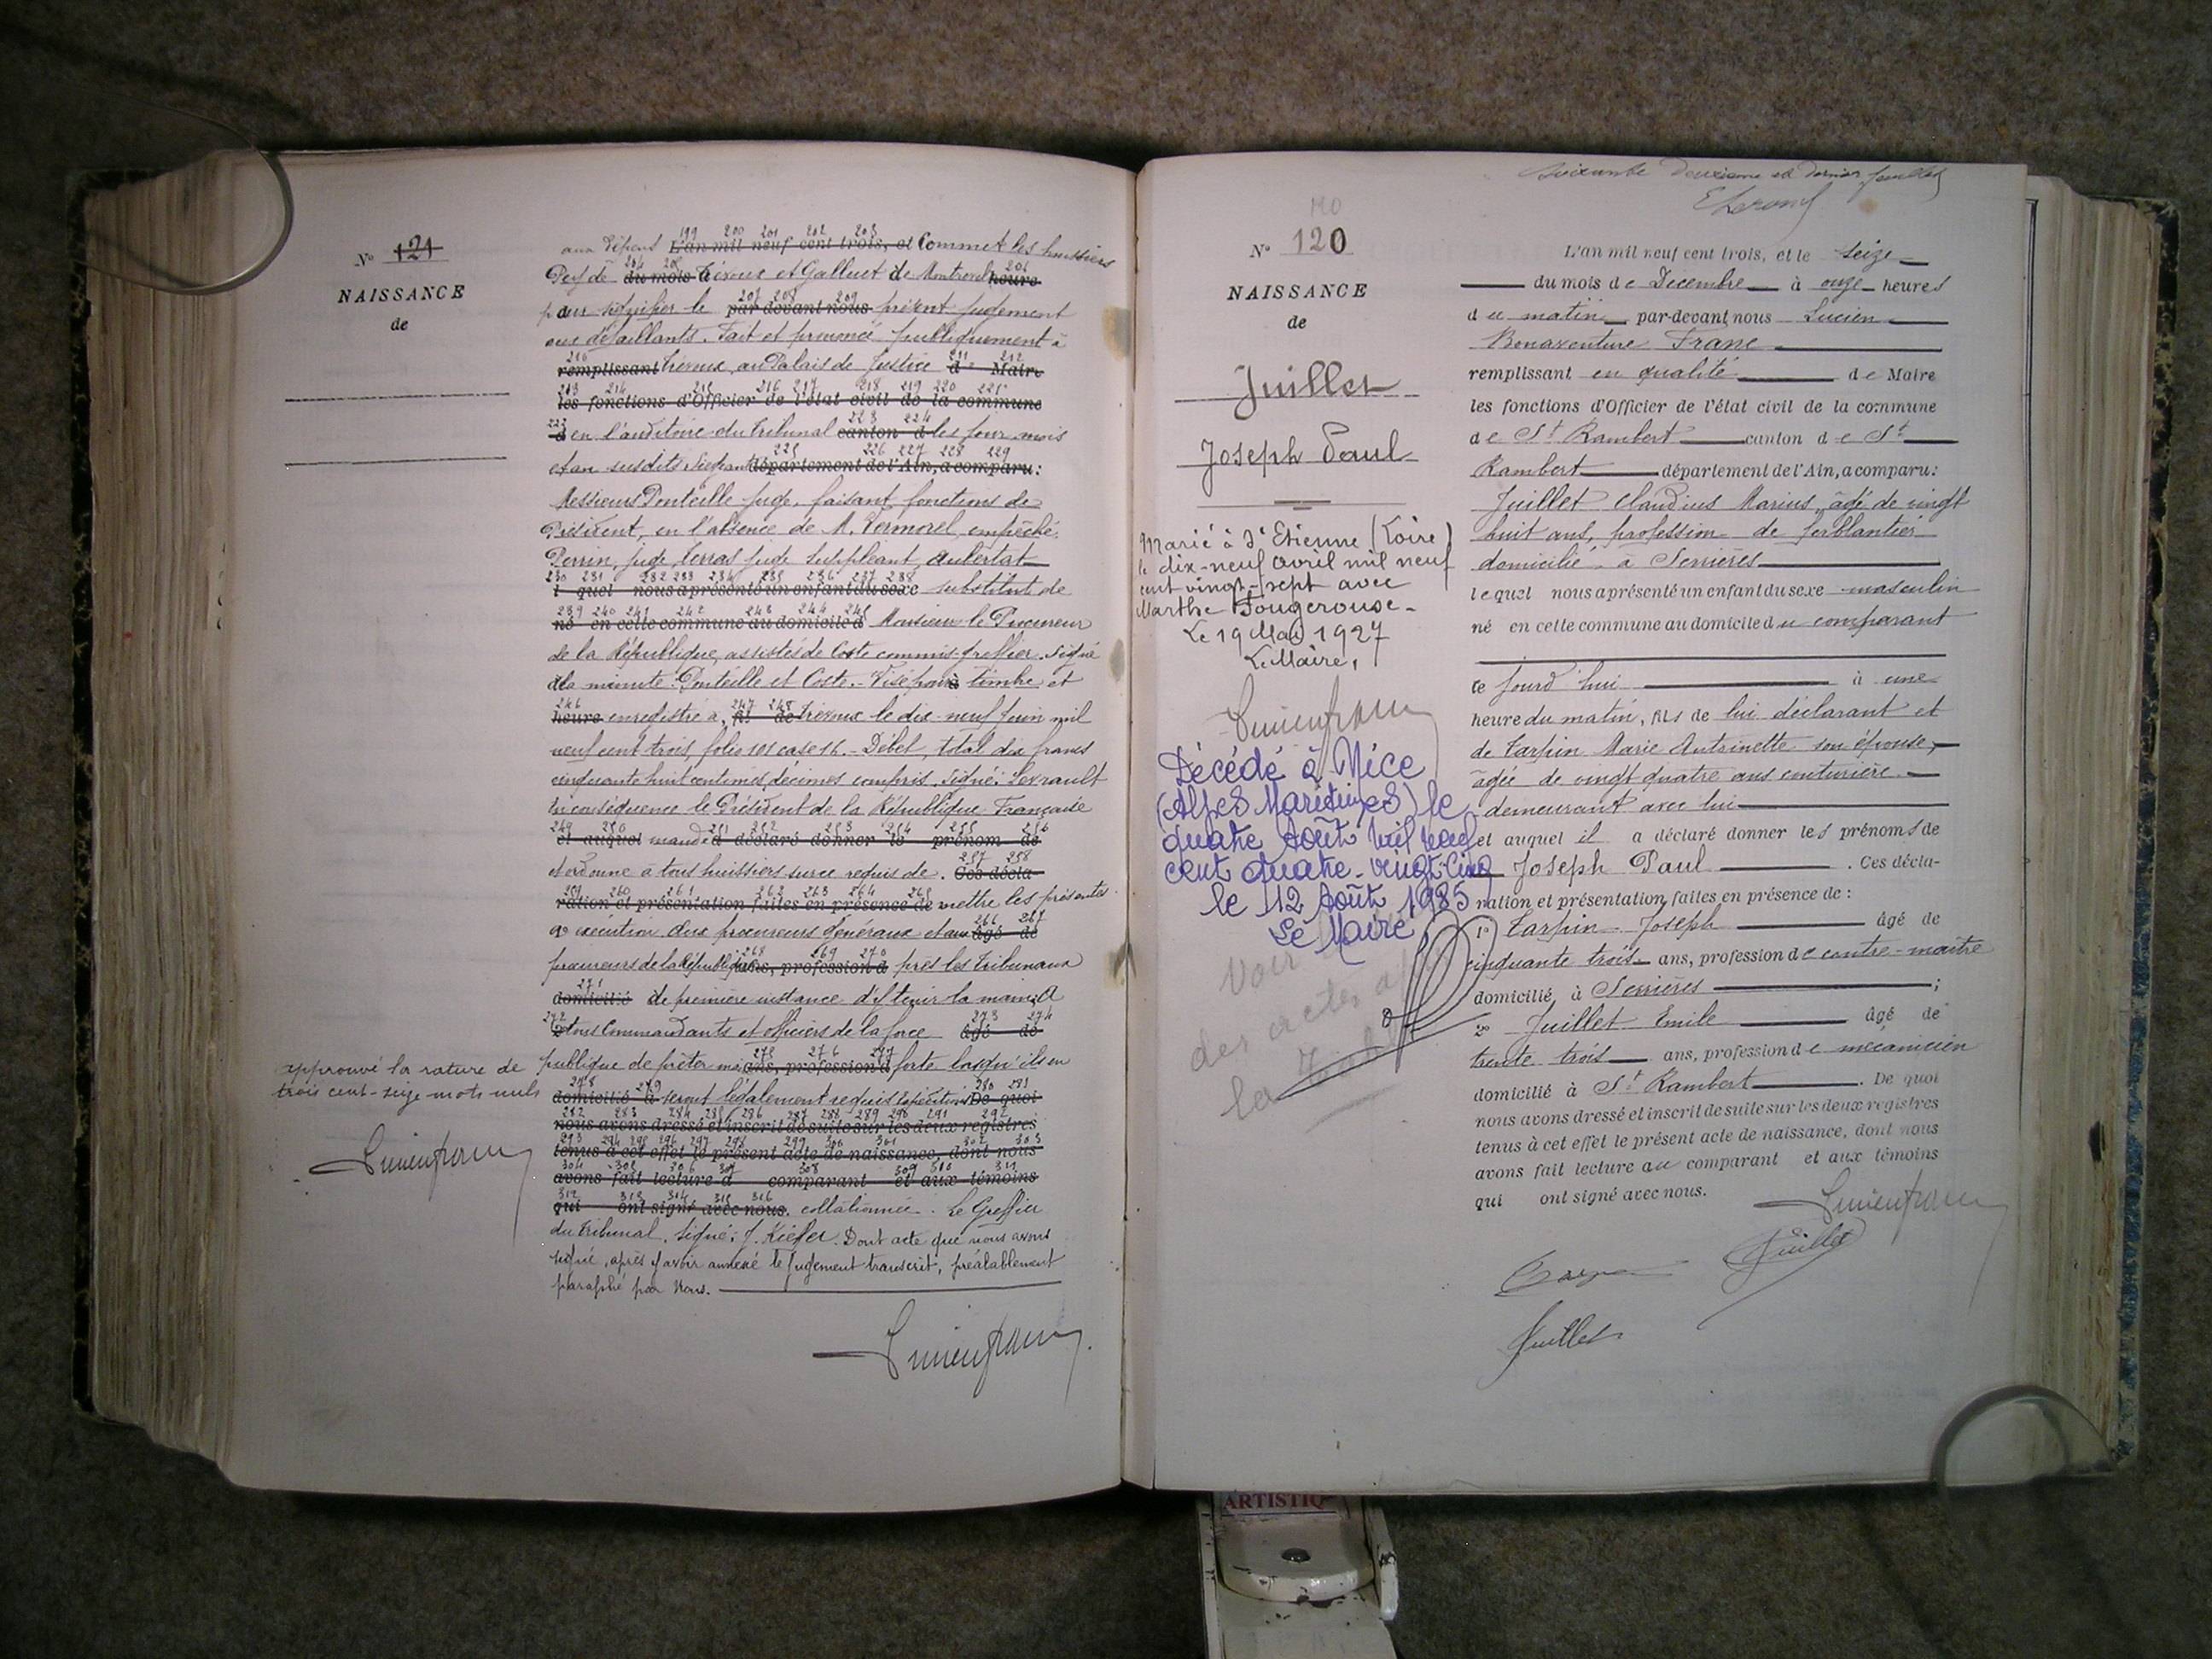 N° 121
NAISSANCE
de
aux dépens L'an mil neuf cent trois, et Commet les huissiers
du mois Trévoux et Galluet de Montrevel heure
pour signifier le par-devant nous présent jugement
aux défaillants. Fait et prononcé publiquement à
remplissant Trévoux, au Palais de Justice d Maire
les fonctions d'Officier de l'état civil de la commune
d en l'auditoire du Tribunal canton d les jour mois
et an susdits, siégeant département de l'Ain, a comparu:
Messieurs Ponteille juge, faisant fonctions de
Président, en l'absence de M. Vermorel empêché,
Perrin, juge, Terras juge suppléant, Aubertat
l quel nous a présenté un enfant du sexe substitut de
né en cette commune au domicile d Monsieur le Procureur
de la République, assistés de Coste commis-greffier. Signé
à la minute: Ponteille et Coste. Visé pour à timbre et
heure enregistré à, fil de Trévoux le dix-neuf juin mil
neuf cent trois, folio 101 case 16. Débet, total dix francs
cinquante huit centimes, décimes compris. Signé: Levrault
En conséquence le Président de la République Française
et auquel mande a déclaré donner le prénom de
et ordonne à tous huissiers sur ce requis de. Ces décla-
ration et présentation faites en présence de mettre les présentes
à exécution. Aux procureurs généraux et aux âgé de
procureurs de la République ans, profession d près les Tribunaux
domicilié de première instance d'y tenir la main. A
2° tous Commandants et officiers de la force âgé de
publique de prêter main ans, profession d forte lorsqu'ils en
domicilié à seront légalement requis. Expédition De quoi
nous avons dressé et inscrit de suite sur les deux registres
tenus à cet effet le présent acte de naissance, dont nous
avons fait lecture d comparant et aux témoins
qui ont signé avec nous. collationnée. Le Greffier
du Tribunal. Signé: J. Kiéfer. Dont acte que nous avons
signé, après y avoir annexé le jugement transcrit, préalablement
paraphé par Nous.
approuvé la rature de
trois cent-seize mots nuls
Lucien Franc
Lucien Franc
soixante deuxième et dernier feuillet
N° 120
NAISSANCE
de
Juillet
Joseph Paul
Marié à St Etienne (Loire)
le dix-neuf avril mil neuf
cent vingt-sept avec
Marthe Fougerouse.
Le 19 Mai 1927
Le Maire,
Lucien Franc
Décédé à Nice
(Alpes Maritimes) le
quatre Août mil neuf
cent quatre-vingt-cinq
le 12 Août 1985
Le Maire
Voir
des actes
la
L'an mil neuf cent trois, et le seize
du mois de Décembre à onze heures
du matin par-devant nous Lucien
Bonaventure Franc
remplissant en qualité de Maire
les fonctions d'Officier de l'état civil de la commune
de St Rambert canton de St
Rambert département de l'Ain, a comparu:
Juillet Claudius Marius, âgé de vingt
huit ans, profession de ferblantier
domicilié à Serrières
lequel nous a présenté un enfant du sexe masculin
né en cette commune au domicile du comparant
ce jourd'hui à une
heure du matin, fils de lui déclarant et
de Tarpin Marie Antoinette son épouse,
âgée de vingt quatre ans couturière
demeurant avec lui
et auquel il a déclaré donner les prénoms de
Joseph Paul. Ces décla-
ration et présentation faites en présence de:
1° Tarpin Joseph âgé de
cinquante trois ans, profession de contre-maître
domicilié à Serrières;
2° Juillet Emile âgé de
trente trois ans, profession de mécanicien
domicilié à St Rambert. De quoi
nous avons dressé et inscrit de suite sur les deux registres
tenus à cet effet le présent acte de naissance, dont nous
avons fait lecture au comparant et aux témoins
qui ont signé avec nous.
Lucien Franc
Juillet
Juillet
ARTISTIQ